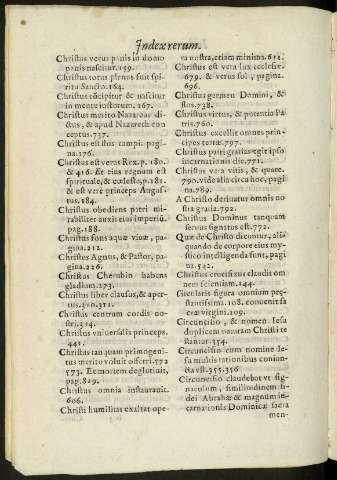 Index rerum.
Christus verus panis in domo
panis nascitur. 159.
Christus totus plenus fuit spi
ritu Sancto. 164.
Christus cōcipitur & nascitur
in mente iustorum. 167.
Christus merito Nazaræus di
ctus, & apud Nazareth con
ceptus. 737.
Christus est flos campi. pagi
na. 176.
Christus est verus Rex. p. 180.
& 416. & eius regnum est
spirituale, & cœleste, p. 181.
& est verè princeps Augus
tus. 184.
Christus obediens patri mi
rabiliter auxit eius imperiũ.
pag. 188.
Christus fons aquæ viuæ, pa
gina. 212.
Christus Agnus, & Pastor, pa
gina. 226.
Christus Cherubin habens
gladium. 273.
Christus liber clausus, & aper
tus. 310. 311.
Christus centrum cordis no
stri. 314.
Christus vniuersalis princeps.
441.
Christus tanquam primogeni
tus merito voluit offerri. 572
573. Et mortem deglutiuit,
pag. 819.
Christus omnia instaurauit.
606.
Christi humilitas exaltat ope
ra nostra, etiam minima. 632.
Christus est vera lux ecclesiæ.
679. & verus sol, pagina.
696.
Christus germen Domini, &
flos. 738.
Christus virtus, & potentia Pa
tris. 760.
Christus excellit omnes prin-
cipes terræ. 797.
Christus patri gratias egit ipso
incarnationis die. 771.
Christus vera vitis, & quare.
790. vide alia circa hoc, pagi
na. 789.
A Christo deriuatur omnis no
stra gratia. 792.
Christus Dominus tanquam
seruus signatus est. 772.
Quæ de Christo dicuntur, ali-
quando de corpore eius my-
stico intelligenda sunt, pagi
na. 542.
Christus crucifixus claudit om
nem scientiam. 144.
Circularis figura omnium præ
stantissima. 108. conuenit sa
cræ virgini. 109.
Circuncisio, & nomen Iesu
duplicem naturam Christi te
stantur. 354.
Circuncisio cum nomine Ie-
su multis rationibus coniun-
cta est. 355. 356
Circuncisio claudebat vt sig-
naculum, similitudinem fi-
dei Abrahæ & magnum in-
carnationis Dominicæ sacra
men-